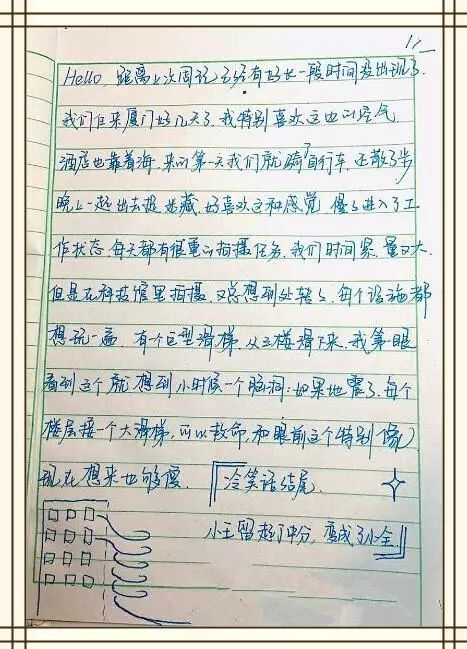 Hello, 距离上次周记已经有好长一段时间没出现了.
我们已来厦门好几天了. 我特别喜欢这里的空气
酒店也靠着海. 来的第一天我们就骑了自行车. 还散了步
晚上一起出去捉迷藏. 好喜欢这种感觉. 慢慢进入了工
作状态. 每天都有很重的拍摄任务. 我们时间紧. 量又大.
但是在科技馆里拍摄. 又总想到处转转. 每个设施都
想玩一遍. 有个巨型滑梯. 从三楼滑下来. 我第一眼
看到这个就想到小时候一个脑洞: 如果地震了. 每个
楼层接一个大滑梯. 可以救命. 和眼前这个特别像
现在想来也够傻.
冷笑话结尾.
小王留起了中分, 变成了小全